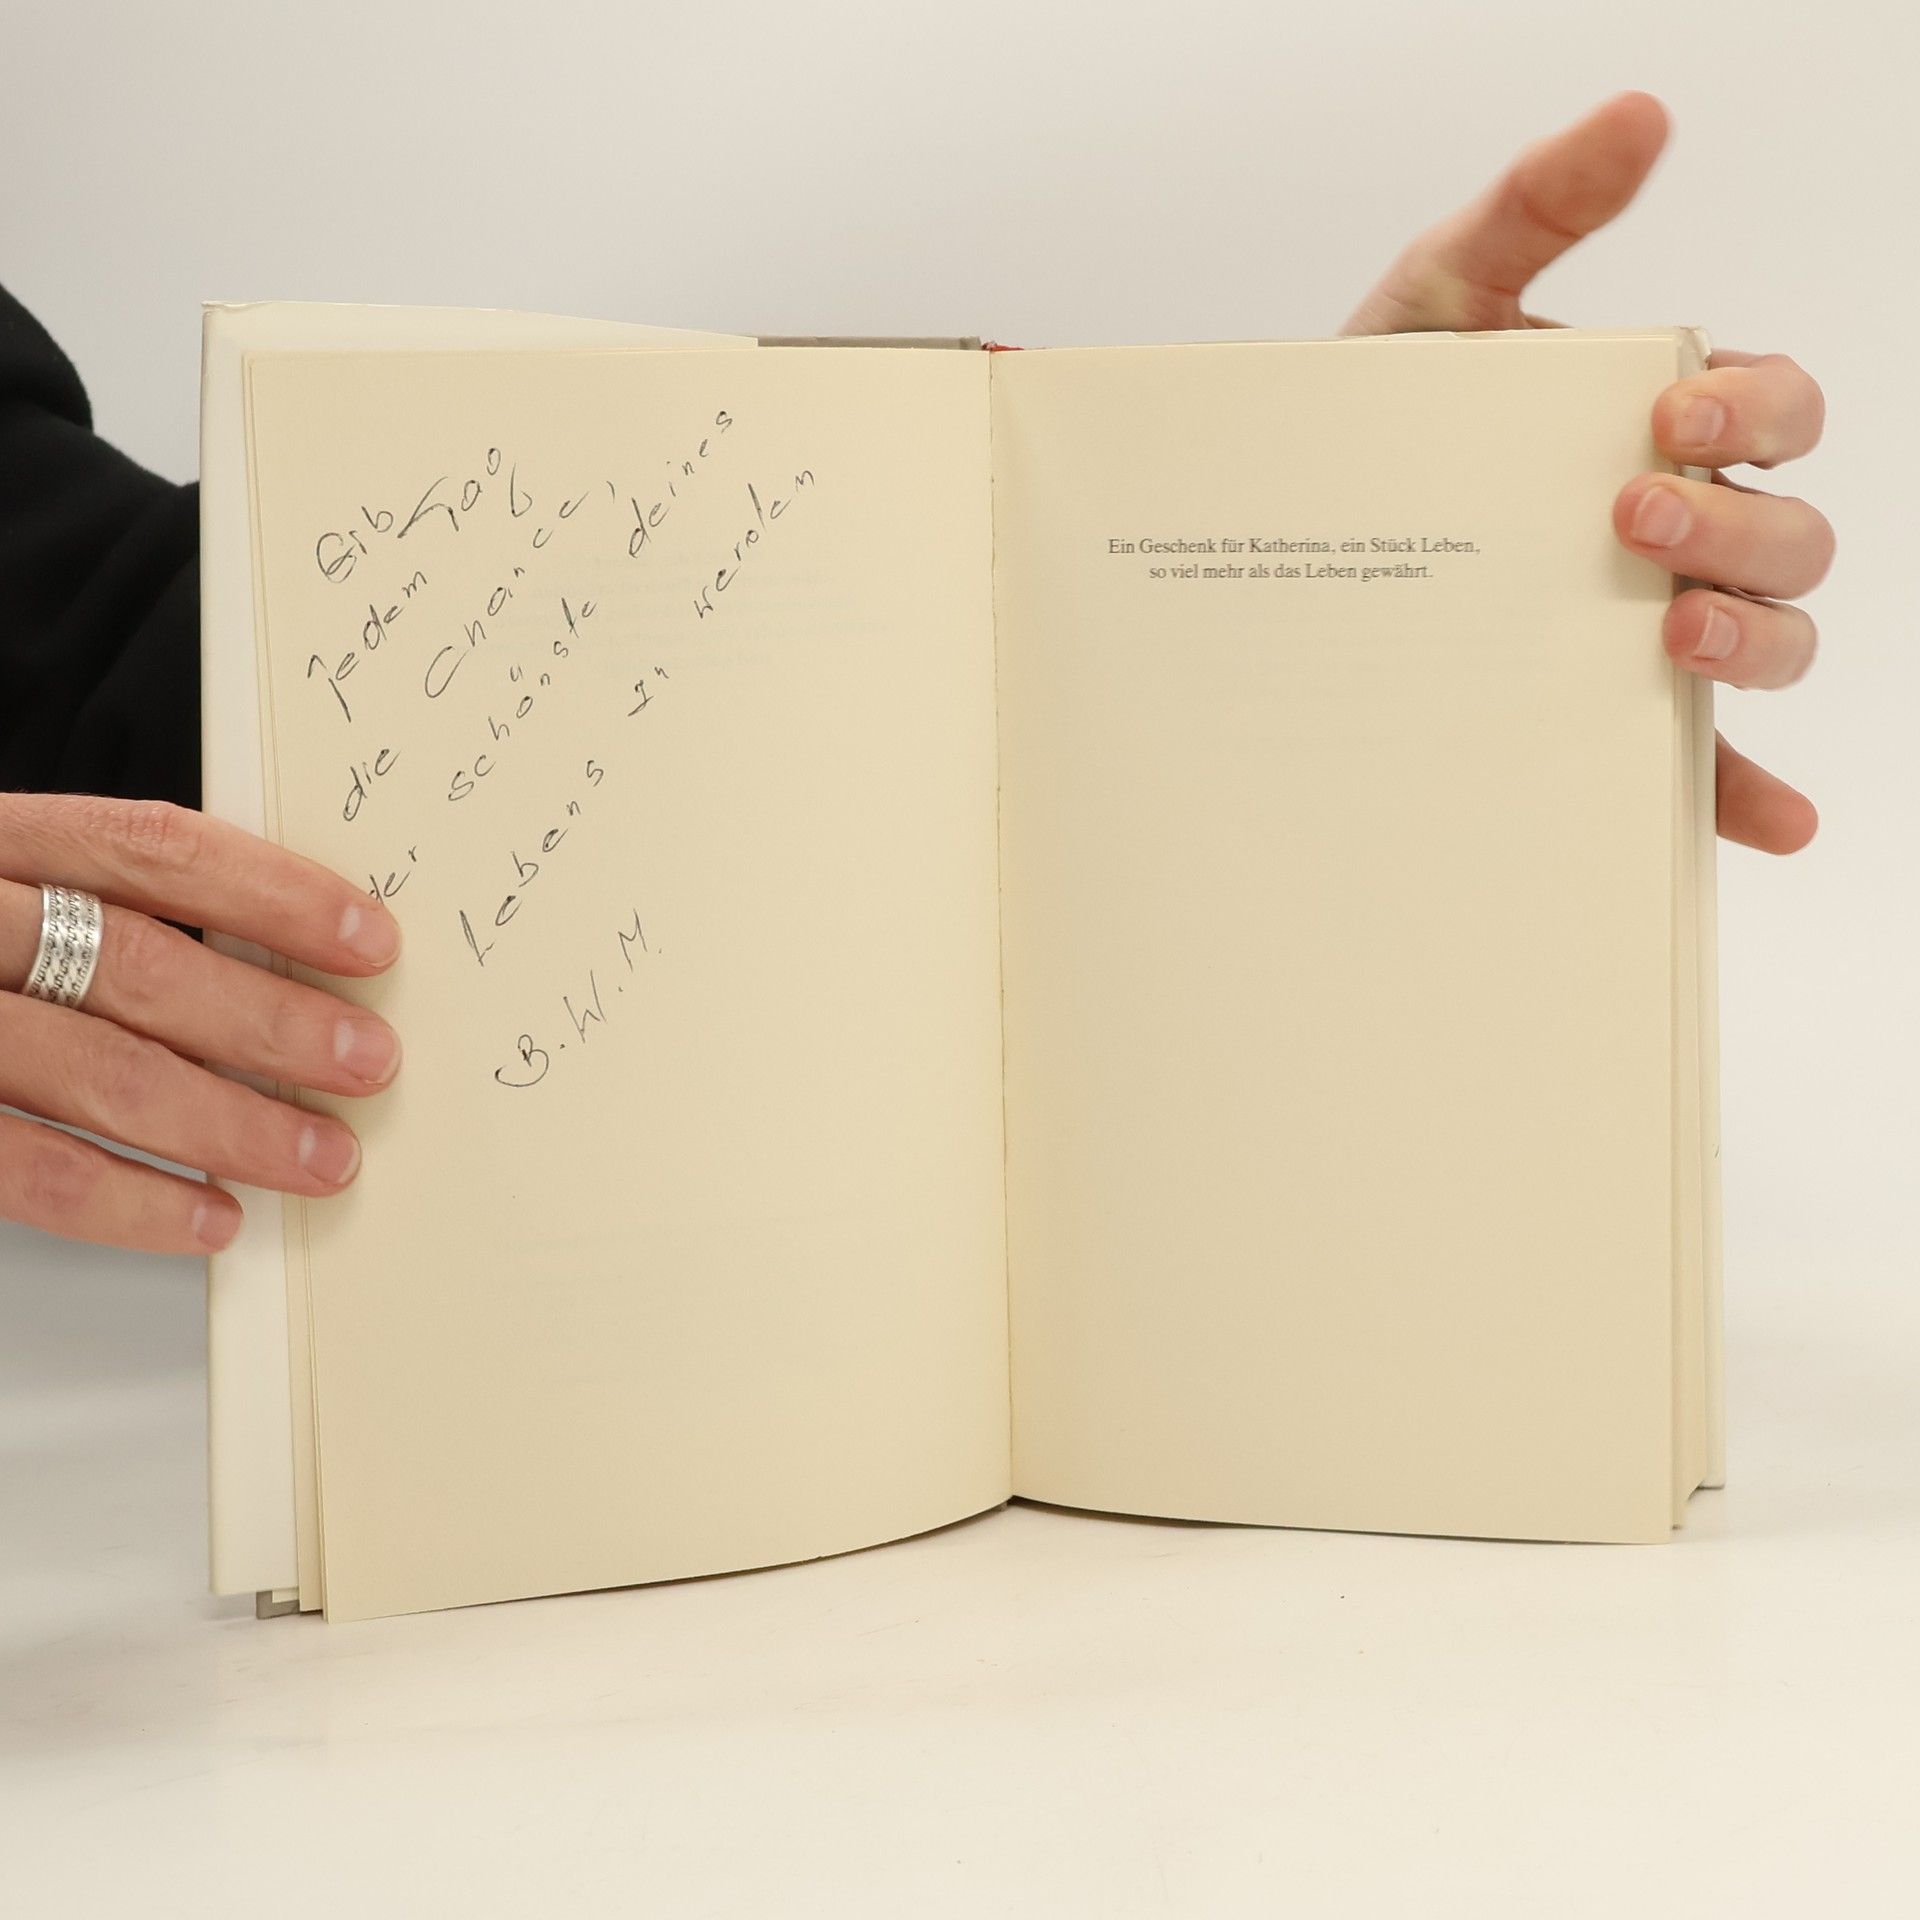 Gib
Jedem Tag
die Chance,
der schönste deines
Lebens zu werden
B.W.M.
Ein Geschenk für Katherina, ein Stück Leben,
so viel mehr als das Leben gewährt.